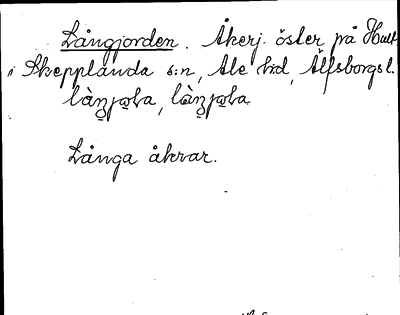 Långjorden. Åkerj. öster på Hult
i Skepplanda s:n, Ale hd, Älfsborgs l.
Långa åkrar.